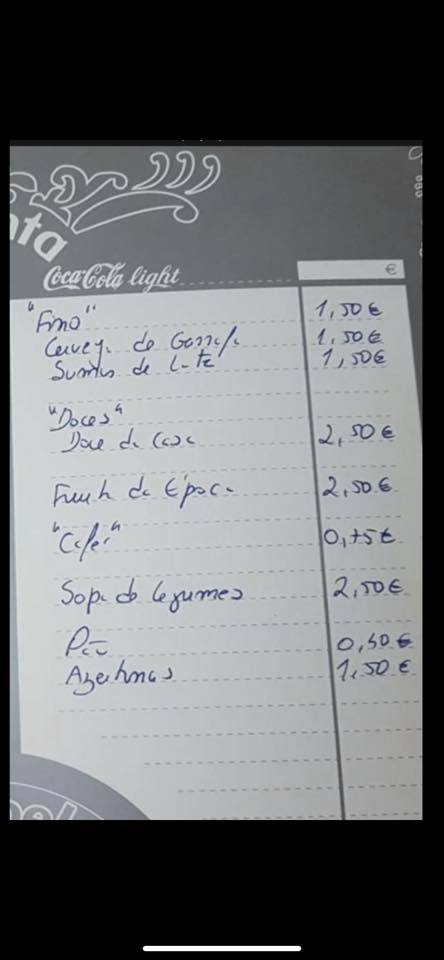 nta
Coca-Cola light
€
"Fino" 1,50€
Cerveja de Garrafa 1,50€
Sumos de Lata 1,50€
"Doces"
Doce da Casa 2,50€
Fruta da Época 2,50€
"Cafés" 0,75€
Sopa de Legumes 2,50€
Pão 0,50€
Azeitonas 1,50€